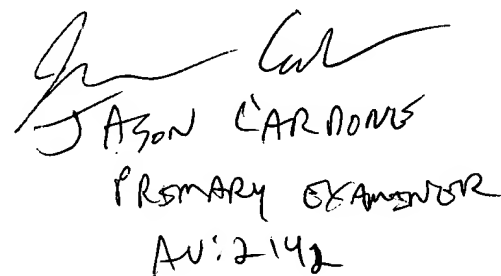 JASON CARDONE
PRIMARY EXAMINER
AU: 2142